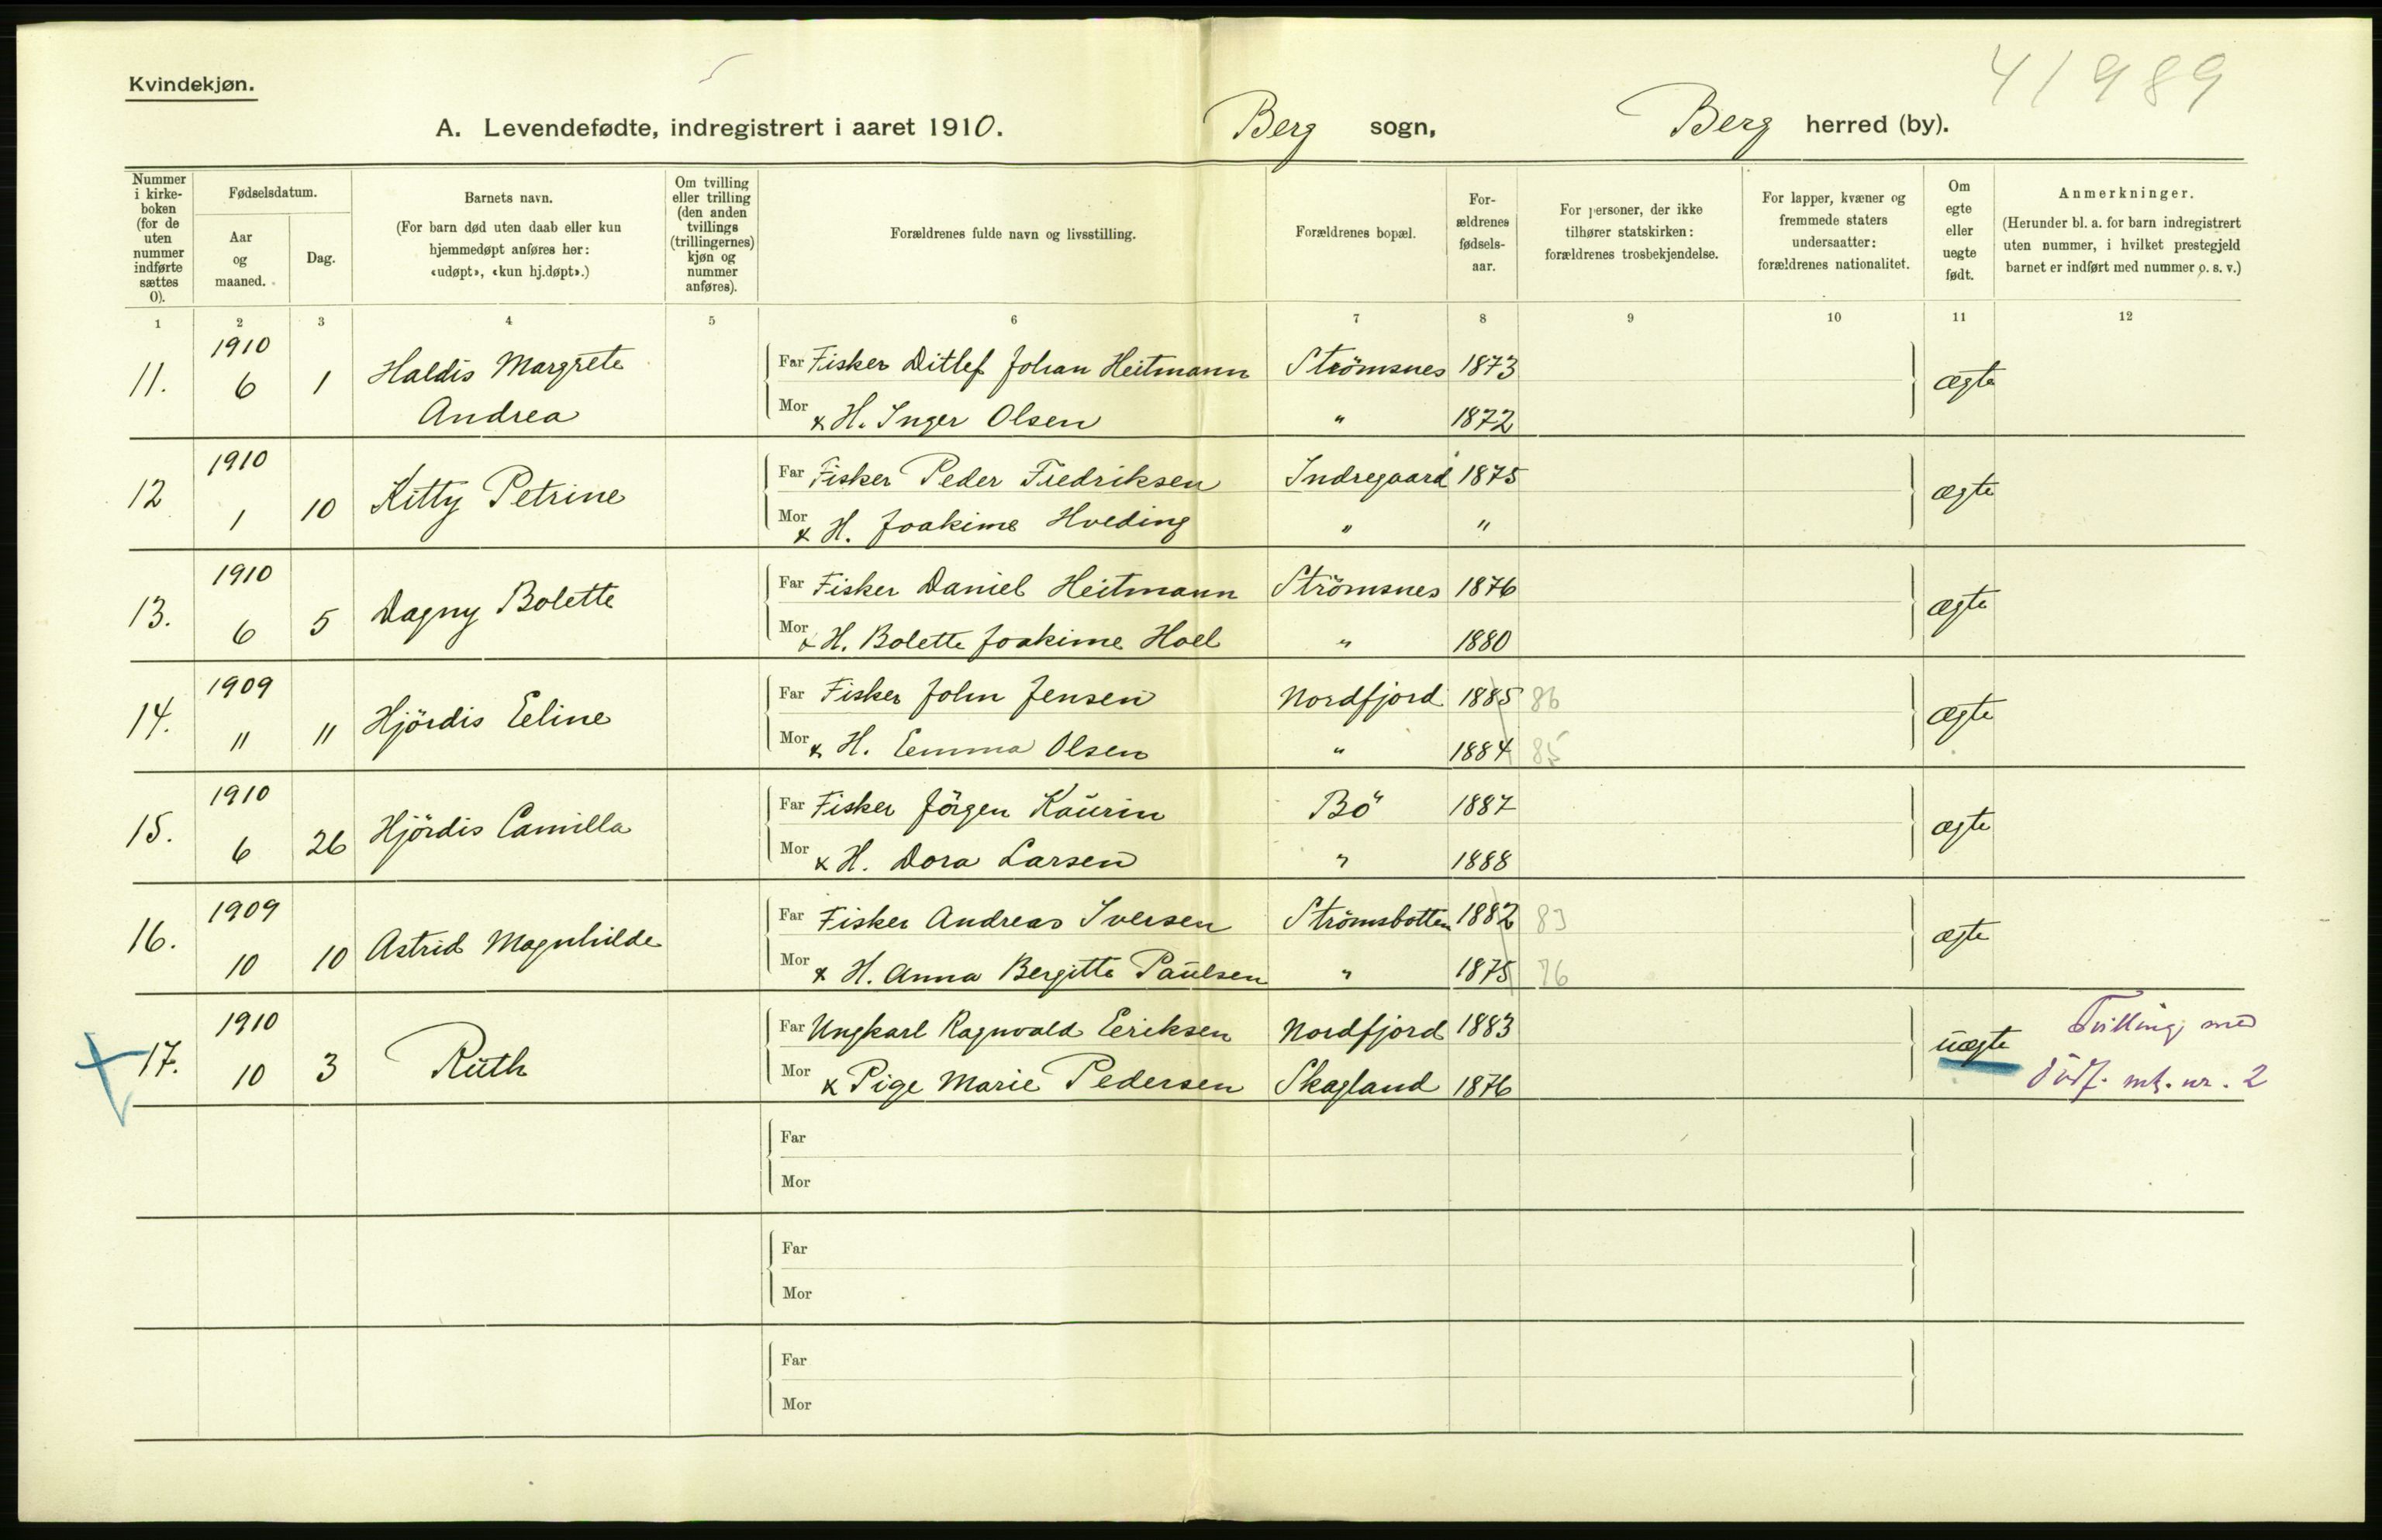 Kvindekjøn.
41989
A. Levendefødte, indregistrert i aaret 1910. Berg sogn, Berg herred (by).
Nummer i kirke-boken (for de uten nummer indførte sættes 0).
Fødselsdatum.
Aar og maaned.
Dag.
Barnets navn.
(For barn død uten daab eller kun hjemmedøpt anføres her: «udøpt», «kun hj.døpt».)
Om tvilling eller trilling (den anden tvillings (trillingernes) kjøn og nummer anføres).
Forældrenes fulde navn og livsstilling.
Forældrenes bopæl.
For-ældrenes fødsels-aar.
For personer, der ikke tilhører statskirken: forældrenes trosbekjendelse.
For lapper, kvæner og fremmede staters undersaatter: forældrenes nationalitet.
Om egte eller uegte født.
Anmerkninger.
(Herunder bl. a. for barn indregistrert uten nummer, i hvilket prestegjeld barnet er indført med nummer o. s. v.)
1 2 3 4 5 6 7 8 9 10 11 12
11. 1910 6 1 Haldis Margrete Andrea Far Fisker Ditlef Johan Heitmann Strömsnes 1873 ægte
Mor & H. Inger Olsen " 1872
12 1910 1 10 Kitty Petrine Far Fisker Peder Fredriksen Indregaard 1875 ægte
Mor & H. Joakime Hveding " "
13. 1910 6 5 Dagny Bolette Far Fisker Daniel Heitmann Strömsnes 1876 ægte
Mor & H. Bolette Joakime Hoel " 1880
14. 1909 11 11 Hjördis Eeline Far Fisker John Jensen Nordfjord 1885 86 ægte
Mor & H. Emma Olsen " 1884 85
15. 1910 6 26 Hjördis Camilla Far Fisker Jörgen Kaurin Bö 1887 ægte
Mor & H. Dora Larsen " 1888
16. 1909 10 10 Astrid Magnhilde Far Fisker Andreas Iversen Strömsbotten 1882 83 ægte
Mor & H. Anna Bergitte Paulsen " 1875 76
17. 1910 10 3 Ruth Far Ungkarl Ragnvald Eeriksen Nordfjord 1883 uægte Tvilling med
Mor & Pige Marie Pedersen Skagland 1876 dödf. mk. nr. 2
Far
Mor
Far
Mor
Far
Mor